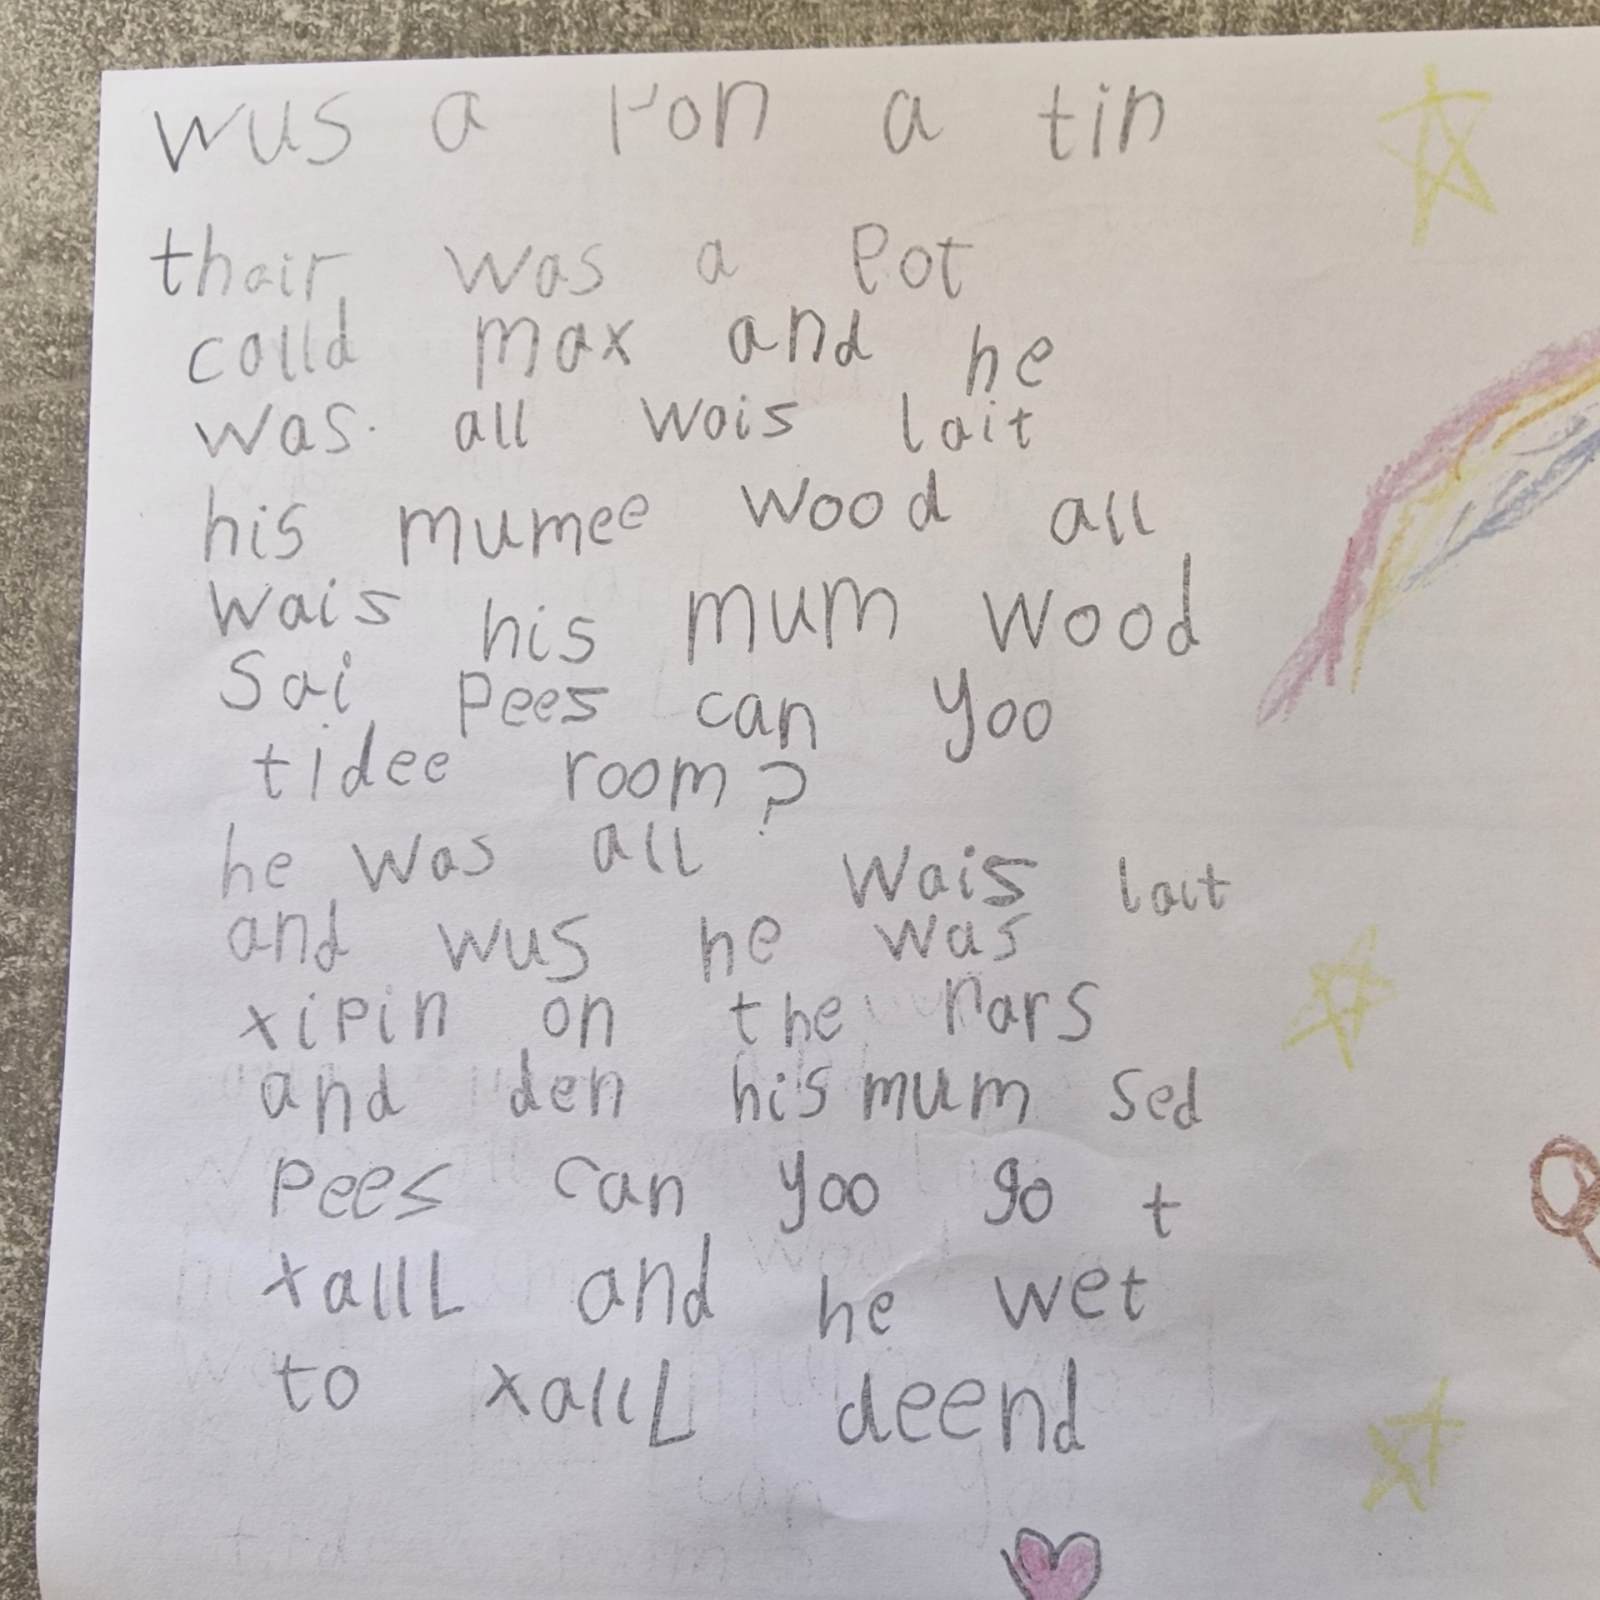 wus a pon a tin
thair was a Pot
calld max and he
was. all wais lait
his mumee wood all
wais his mum wood
Sai Pees can yoo
tidee room?
he was all wais lait
and wus he was
xipin on the nars
and den his mum sed
Pees can yoo go t
xallL and he wet
to xallL deend